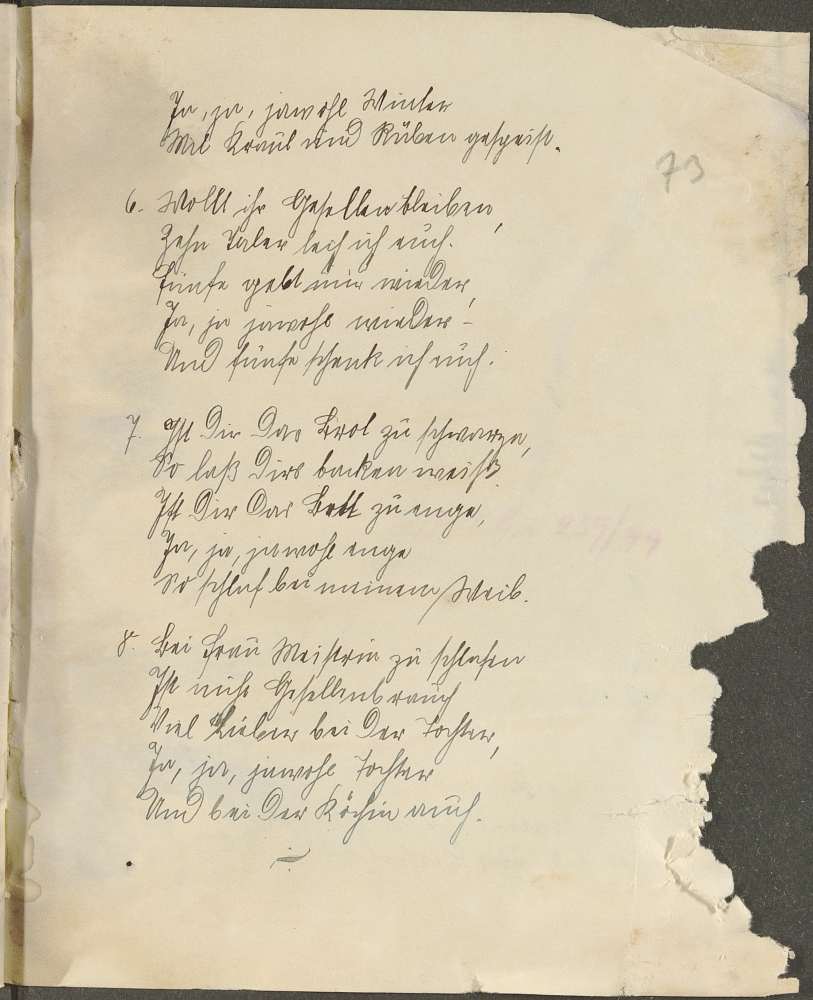 Ja, ja, jawohl Winter
Mit Kraut und Rüben gespeist.
73
6. Wollt ihr Gesellen bleiben,
Zehn Taler leih ich euch.
Fünfe gebt mir wieder,
Ja, ja jawohl wieder –
Und fünfe schenk ich euch.
7. Ist Dir Das Brot zu schwarze,
So laß Dirs backen weiß.
Ist Dir Das Bett zu enge,
Ja, ja, jawohl enge
So schlaf bei meinem Weib.
8. Bei Frau Meistrin zu schlafen
Ist nicht Gesellenbrauch
Viel Lieber bei Der Tochter,
Ja, ja, jawohl, Tochter
Und bei Der Köchin auch.